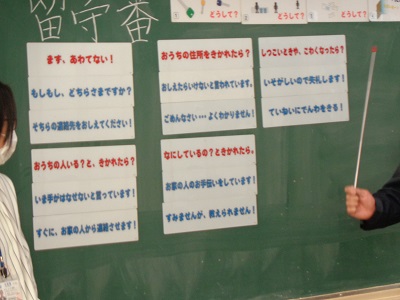 留守番
どうして？
どうして？
まず、あわてない！
もしもし、どちらさまですか？
そちらの連絡先をおしえてください！
おうちの住所をきかれたら？
おしえたらいけないと言われています。
ごめんなさい・・・よくわかりません！
しつこいときや、こわくなったら？
いそがしいので失礼します！
ていねいにでんわをきる！
おうちの人いる？と、きかれたら？
いま手がはなせないと言っています！
すぐに、お家の人から連絡させます！
なにしているの？ときかれたら。
お家の人のお手伝いをしています！
すみませんが、教えられません！